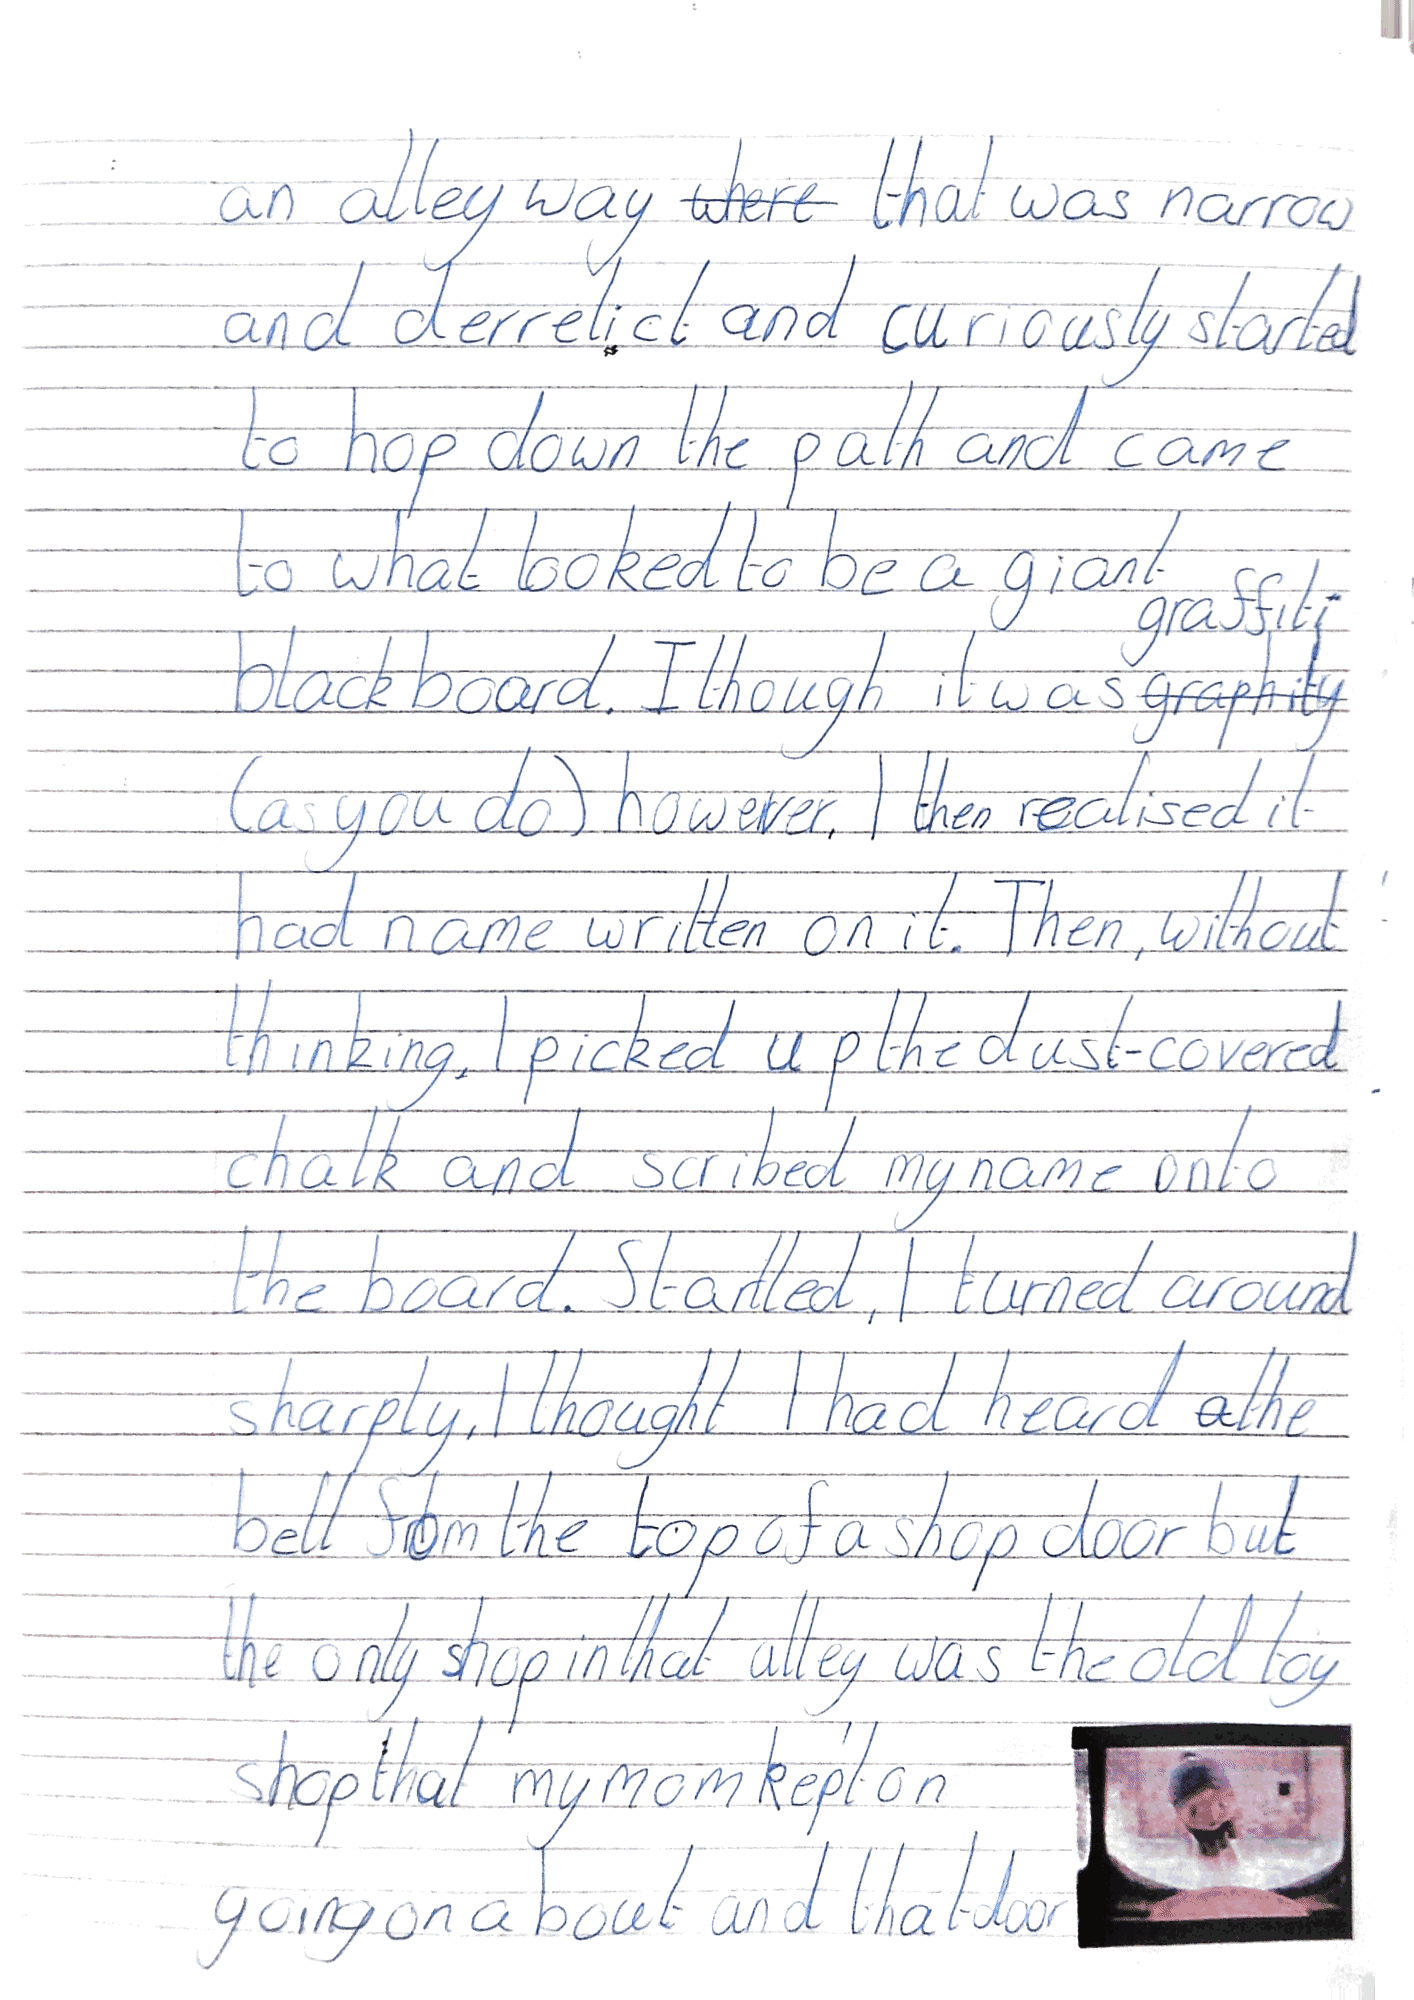 an alley way where that was narrow
and derrelict and curiously started
to hop down the path and came
to what looked to be a giant
graffiti
blackboard. I though it was graphity
(as you do) however, I then realised it
had name written on it. Then, without
thinking, I picked up the dust-covered
chalk and scribed my name onto
the board. Startled, I turned around
sharply, I thought I had heard a the
bell from the top of a shop door but
the only shop in that alley was the old toy
shop that my mom kept on
going on about and that door